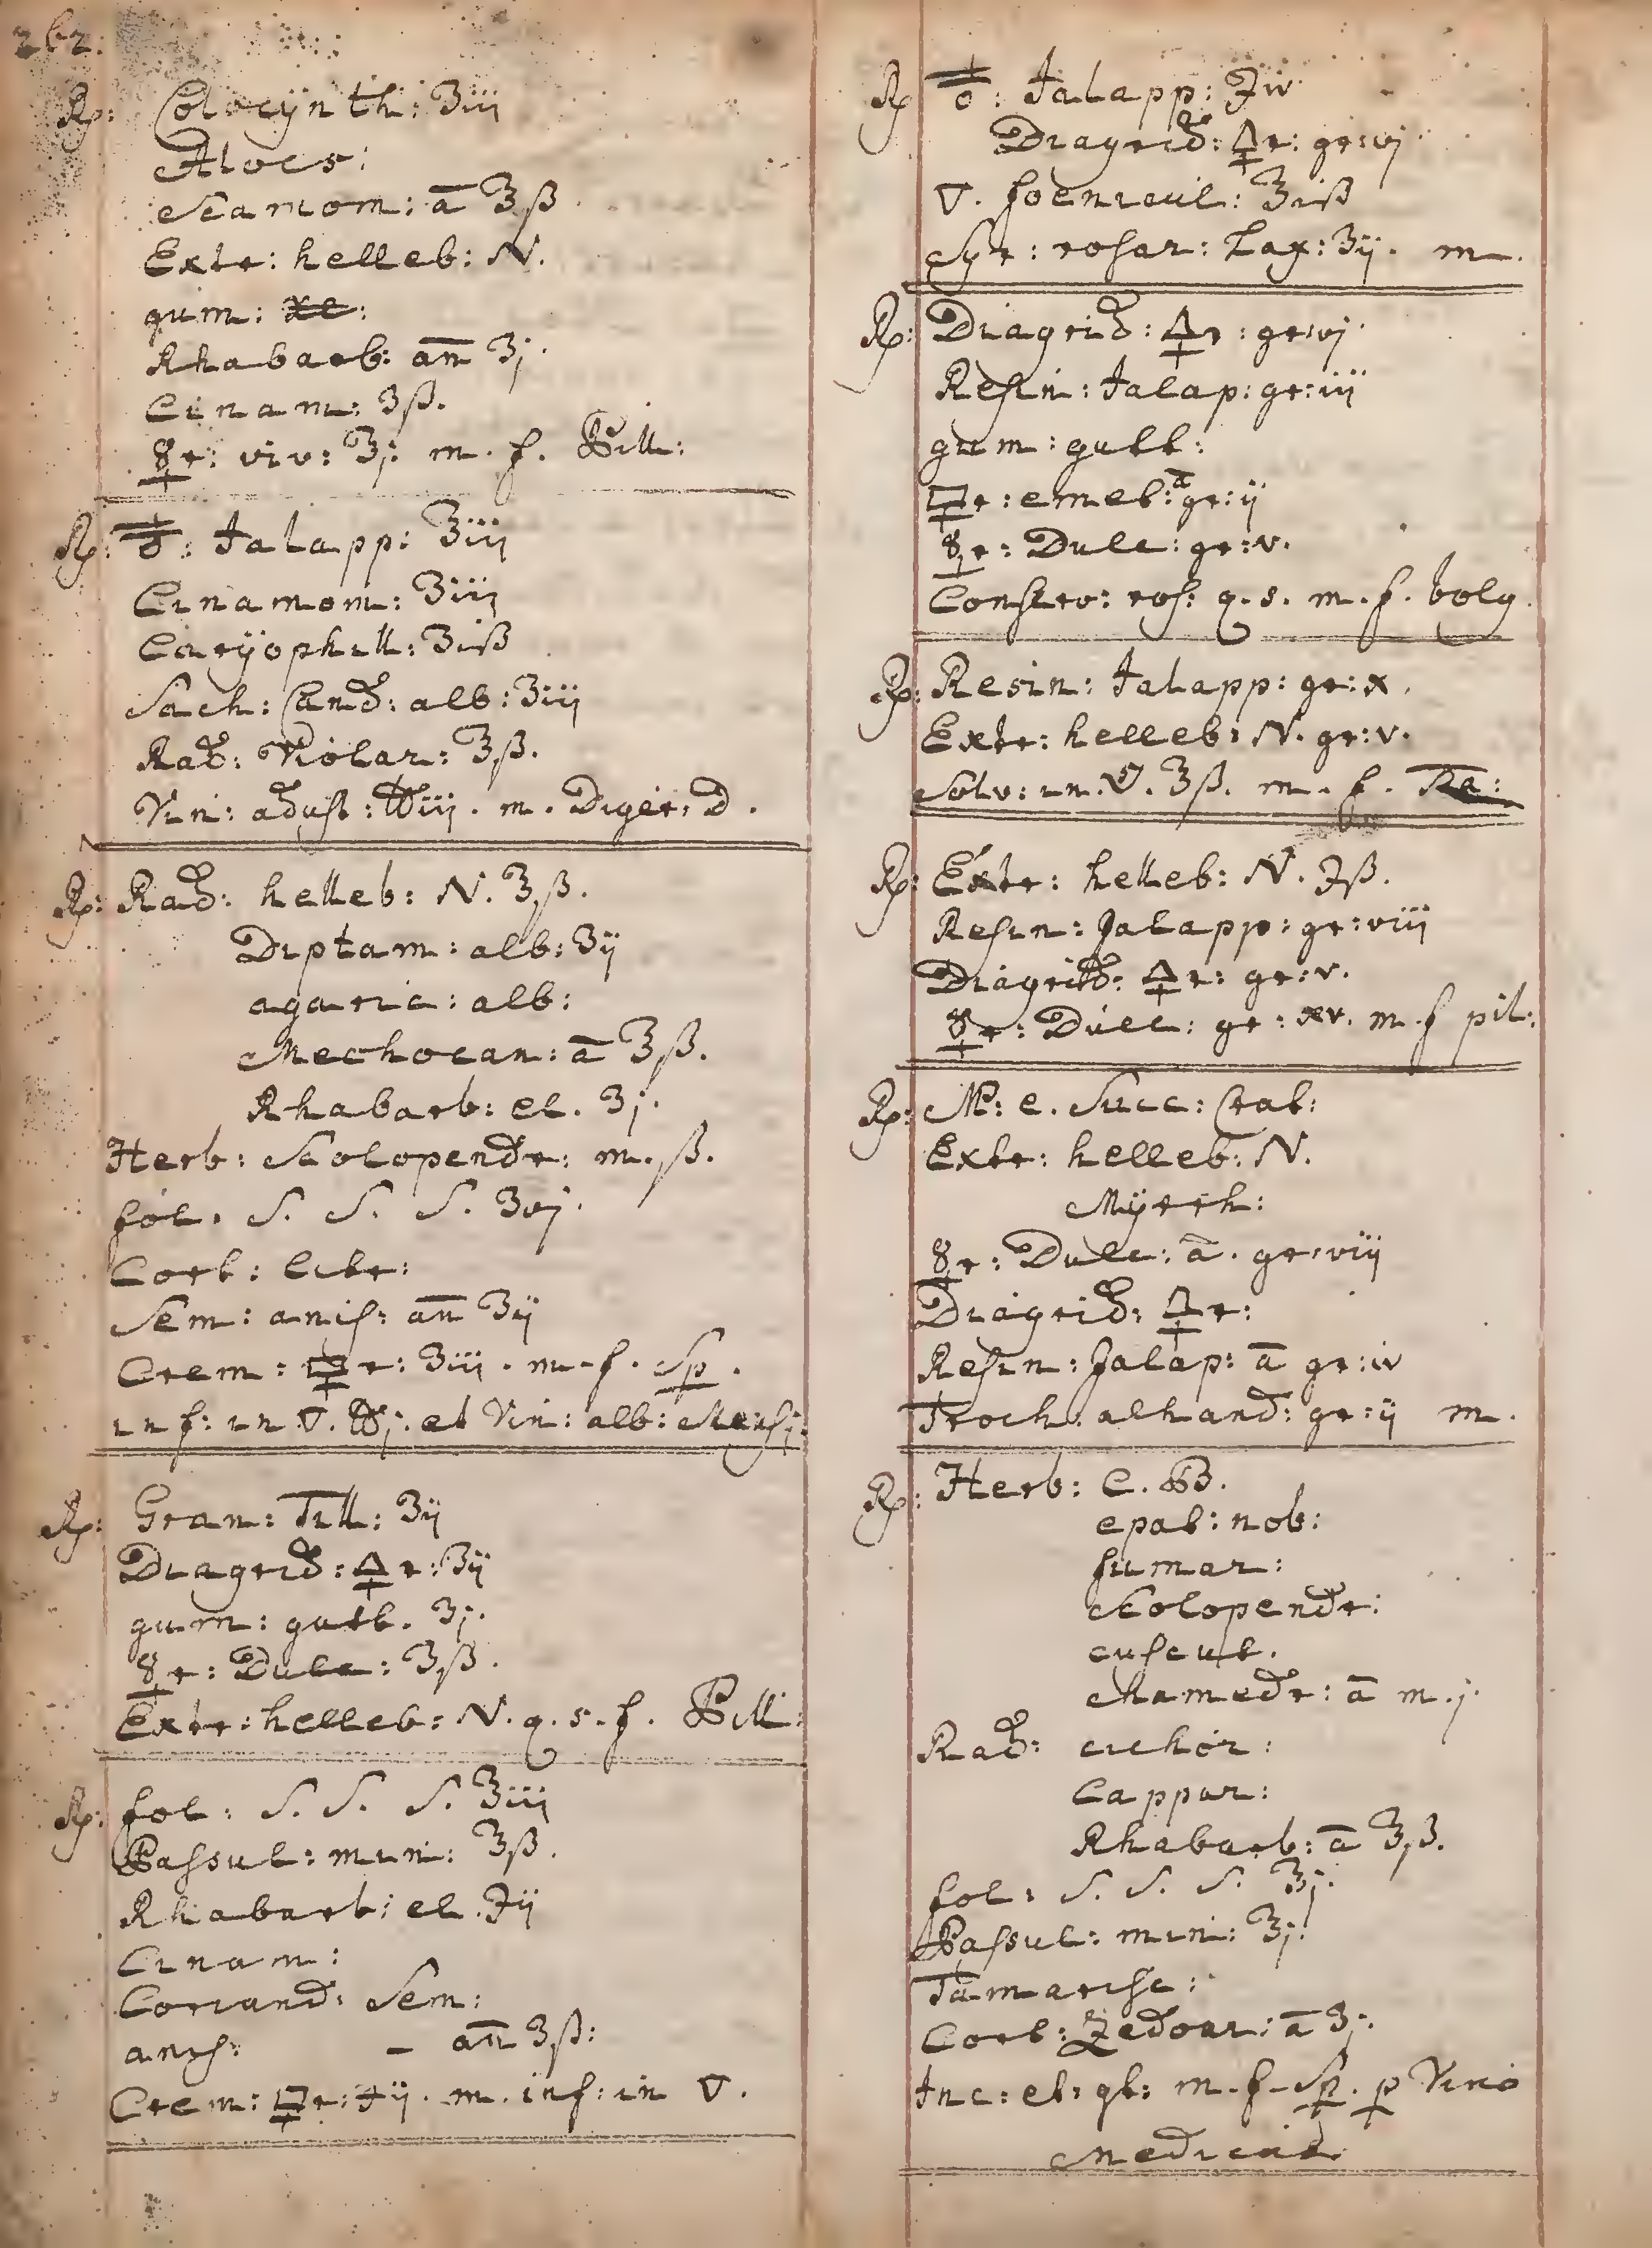 262.
Rp: Colocÿnth: ʒiij
Aloes:
Scamom: ā ʒß
Extr: helleb: N.
gum:
Rhabarb: añ ʒj.
Cinam: ʒß.
☿r: viv: ʒj: m. f. Pill:
Rp: Jalapp: ʒiij
Cinamom: ʒiij
Carÿophill: ʒiß
Sach: Cand: alb: ʒiij
Rad: Violar: ʒß.
Vin: adust: ℔iij. m. Diger: D.
Rp: Rad: helleb: N. ʒß.
Diptam: alb: ʒij
agaric: alb:
Mechocan: ā ʒß.
Rhabarb: el. ʒj.
Herb: Scolopendr: m. ß.
fol. S. S. S. ʒvj.
Cort: Citr:
Sem: anis: añ ʒij
Crem: 🜿r: ʒiij. m. f. Sp.
inf: in ▽. ℔j. et Vin: alb: Mensj:
Rp: Gran: Till: ʒij
Diagrid: 🜍r: ʒij
gum: gutt. ʒj.
☿r: Dulc: ʒß.
Extr: helleb: N. q. s. f. Pill:
Rp: fol: S. S. S. ʒiij
Passul: min: ʒß.
Rhabarb: el. ʒij
Cinam:
Coriand: Sem:
anis: – añ ʒß:
Crem: 🜿r: ʒij. m. inf: in ▽.
Rp Jalapp: ʒiv
Diagrid: 🜍r: gr: vj
▽. foenicul: ʒiß
Syr: rosar: Lax: ʒij. m.
Rp: Diagrid: 🜍r: gr: vj.
Resin: Jalap: gr: iij
gum: gutt:
🜿r: emet: ā gr: ij
☿r: Dulc: gr: v.
Conserv: ros: q. s. m. f. bolg.
Rp: Resin: Jalapp: gr: x.
Extr: helleb: N. gr: v.
Solv: in. ʒß. m. f.
Rp: Extr: helleb: N. ʒß.
Resin: Jalapp: gr: viij
Diagrid: 🜍r: gr: v.
☿r: Dulc: gr: xv. m. f pil:
Rp: M: e. Succ: Crat:
Extr: helleb: N.
Mÿrrh:
☿r: Dulc: ā. gr: viij
Diagrid: 🜍r:
Resin: Jalap: ā gr: iv
Troch: alhand: gr: ij m.
Rp: Herb: C. B.
epat: nob:
fumar:
Scolopendr:
cuscut.
chamedr: ā m. j.
Rad: cichor:
Cappar:
Rhabarb: ā ʒß.
fol: S. S. S. ʒj.
Passul: min: ʒj:
Tamarisc:
Cort: Zedoar: ā ʒj.
Inc: et: qt: m. f. Sp. p Vino
Medical: